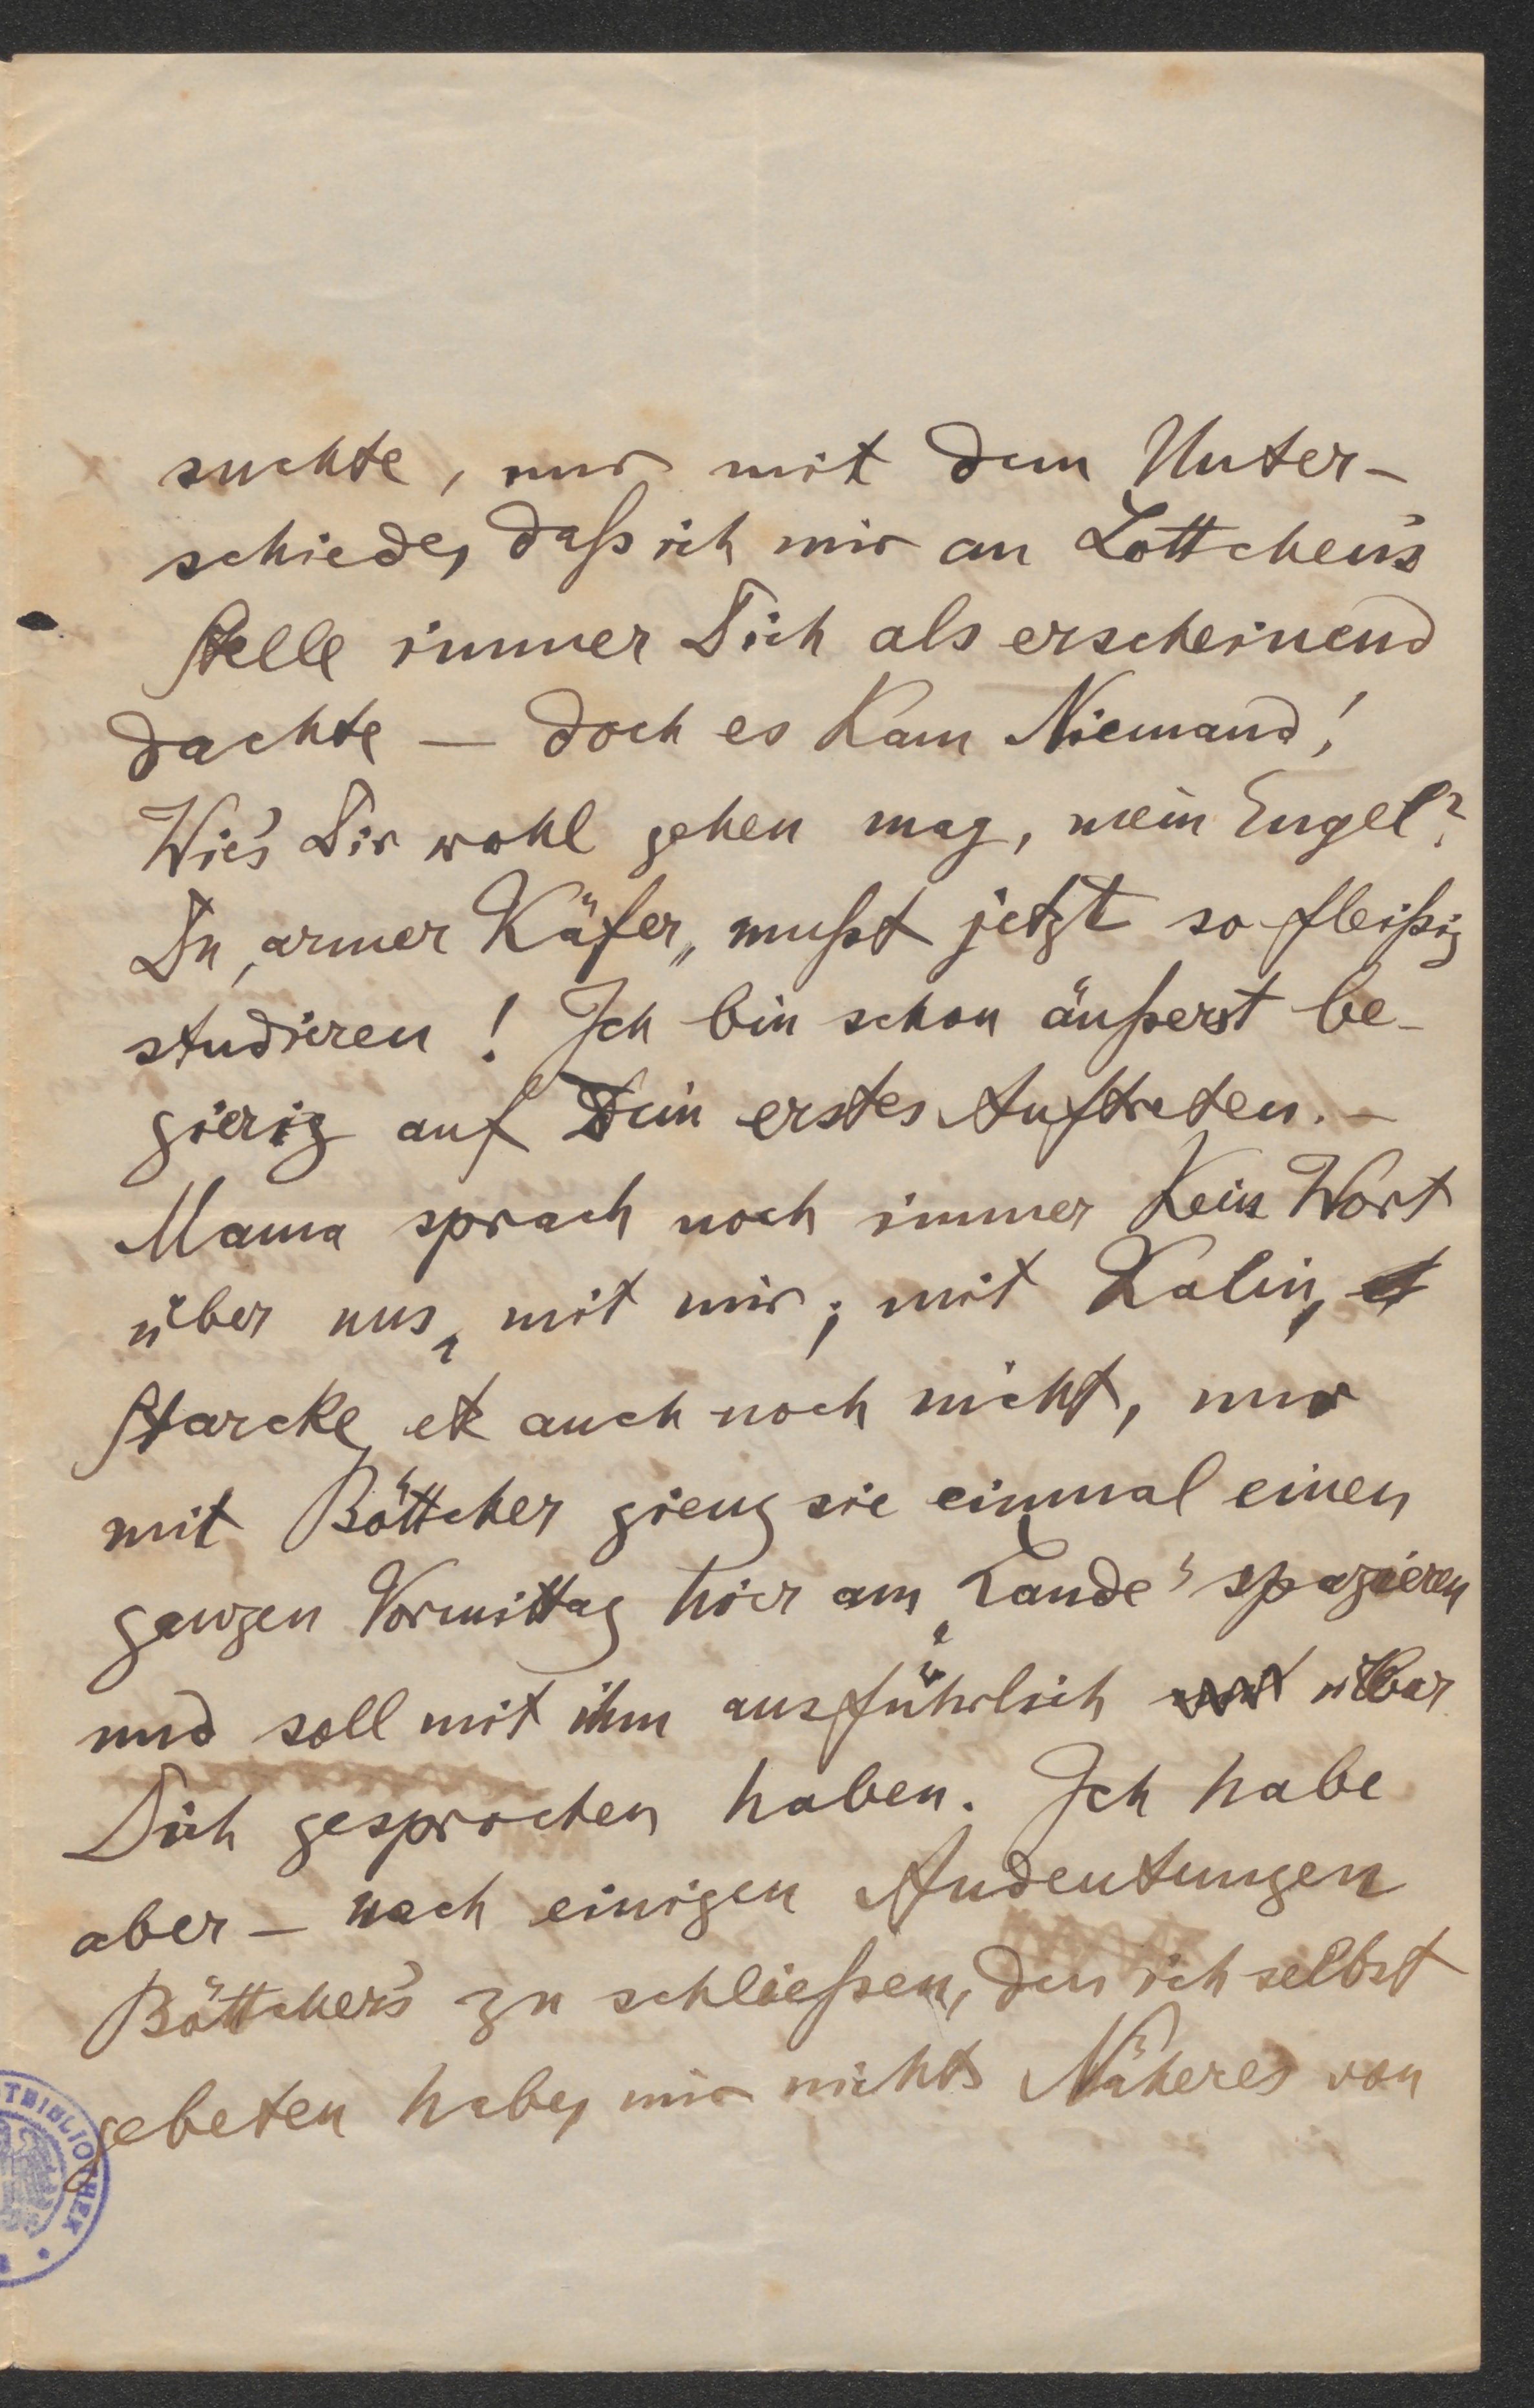 suchte, nur mit dem Unter-
schiede, daß ich mir an Lottchen's
Stelle immer Dich als erscheinend
dachte — doch es kam Niemand!
Wie's Dir wohl gehen mag, mein Engel?
Du „armer Käfer„ mußt jetzt so fleißig
studieren! Ich bin schon äußerst be-
gierig auf Dein erstes Auftreten. —
Mama sprach noch immer kein Wort
über uns, mit mir; mit Kalin,
Starcke, et auch noch nicht, nur
mit Böttcher gieng sie einmal einen
ganzen Vormittag hier am „Lande" spazieren
und soll mit ihm ausführlich über
Dich gesprochen haben. Ich habe
aber — nach einigen Andeutungen
Böttcher's zu schließen, den ich selbst
gebeten habe, mir nichts Näheres von
TBIBLIOTHEK